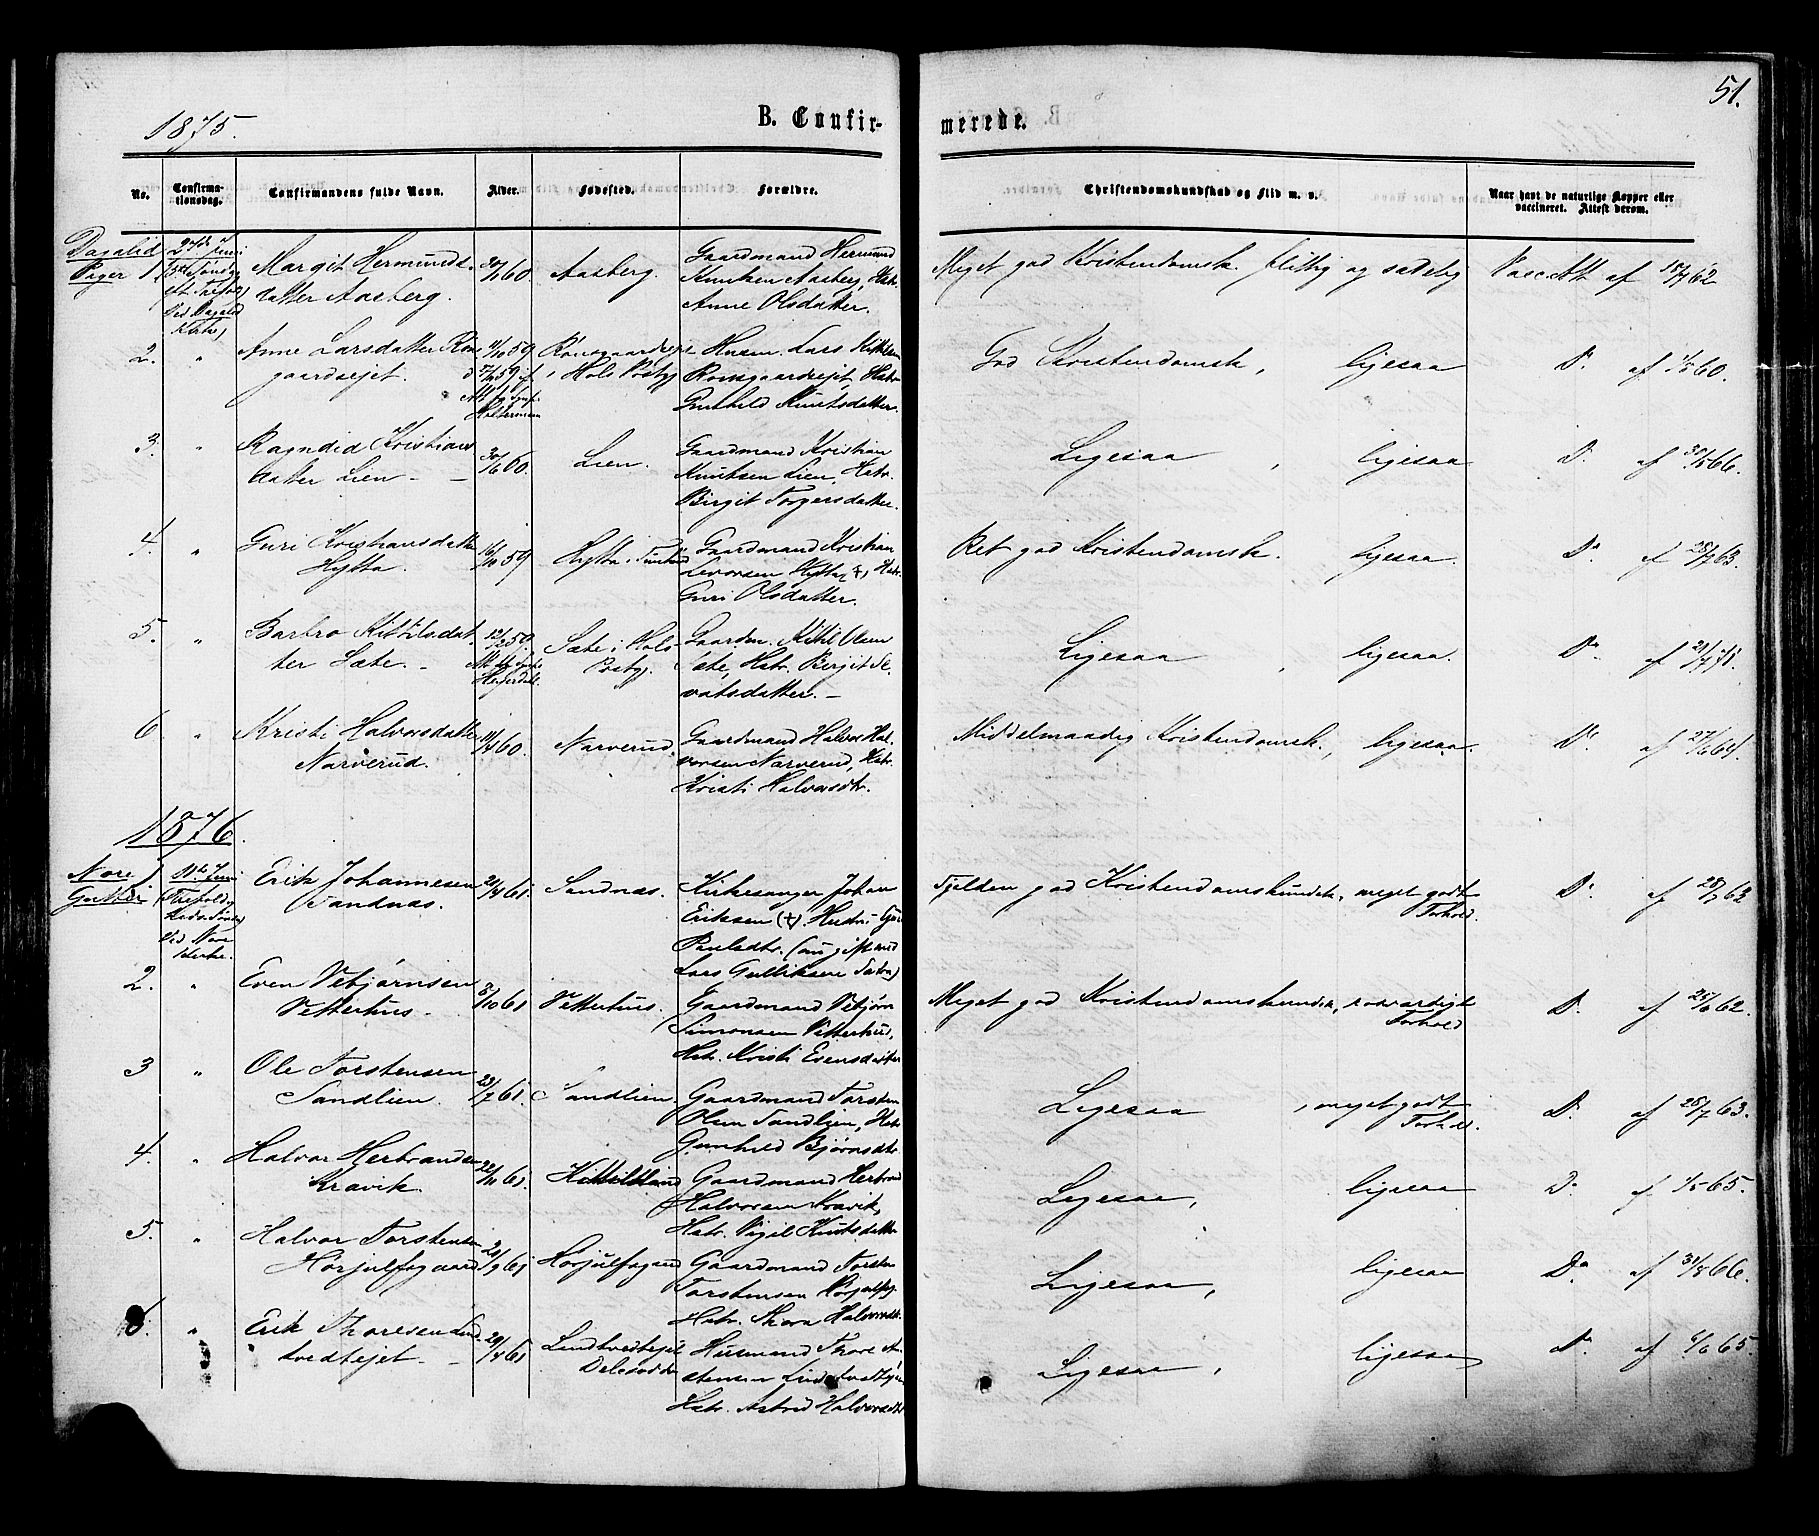 51.
1875.
B. Confir-
merede.
No.
Confirma-
tionsdag.
Confirmandens fulde Navn.
Alder.
Fødested.
Forældre.
Christendomskundskab og Flid m. v.
Naar havt de naturlige Kopper eller
vaccineret. Attest derom.
Dagalid
Piger
1
27de Juni
Søndag
eft. Trefold.
Ved Dagalid
Kirke)
Margit Hermunds-
datter Aasberg.
60.
Aasberg.
Gaardmand Hermund
Knutsen Aasberg, Hstr.
Anne Olsdatter.
Meget god Kristendomsk. flittig og sædelig
Vacc. Att af 18/7 62
2.
"
Anne Larsdatter
gaardsejet.
11/10 59
i Hols
Husm. Lars
Rønsgaardsejet, Hstr.
Gunhild Knutsdatter.
God Kristendomsk, ligesaa
Do af 1/5 60.
3.
"
Ragndid Kristians
datter Lien.
30/6 60.
Lien.
Gaardmand Kristian
Knutsen Lien, Hstr.
Birgit Torgersdatter.
Ligesaa, ligesaa
Do af 66.
4.
"
Guri Kristiansdatter
Hytta.
16/10 59
Hytta i
Gaardmand Kristian
Levorsen Hytta (+), Hstr.
Guri Olsdatter.
Ret god Kristendomsk. ligesaa.
Do af 28/7 63.
5.
"
Barbro Kittilsdat
ter Sæte.
59.
Sæte i Hols
Gaardm. Kittil Olsen
Sæte, Hstr. Bergit Se-
vatsdatter.
Ligesaa, ligesaa.
Do af 21/4 71.
6
"
Kristi Halvorsdatter
Narverud.
11/4 60.
Narverud.
Gaardmand Halvor Hal-
vorsen Narverud, Hstr.
Kristi Halvorsdtr.
Middelmaadig Kristendomsk., ligesaa.
Do af 27/6 64.
1876.
Nore
Gutter
1
11te Juni
(Trefoldig
heds Sønd.)
Ved Nore
Kirke.
Erik Johannesen
Sandnæs.
21/4 61
Sandnæs.
Kirkesanger Johan
Eriksen (+). Hustru
Paulsdtr. (nu gift med
Lars Gulliksen
god Kristendomskundsk, meget godt
Forhold.
Do af 28/7 62
2.
"
Even Vebjørnsen
Vetterhus.
8/10 61
Vetterhus.
Gaardmand Vebjørn
Simonsen Vetterhus,
Hstr. Kristi Evensdatter
Meget god Kristendomskundsk, roværdigt
Forhold
D. af 25/6 62.
3
"
Ole Torstensen
Sandlien.
23/7 61.
Sandlien.
Gaardmand Torsten
Olsen Sandlien, Hstr
Gunhild Bjørnsdtr.
Ligesaa, meget godt
Forhold.
D. af 28/7 63.
4.
"
Halvor Herbrandsen
Kravik.
22/11 61.
Gaardmand Herbrand
Halvorsen Kravik,
Hstr. Sigil Knutsdatter
Ligesaa, ligesaa
D. af 1/5 65.
5.
"
Halvor Torstensen
Hørjulfsgaard
21/9 61
Hørjulfsgaard
Gaardmand Torsten
Torstensen
Hstr. Thora Halvorsdtr.
Ligesaa, ligesaa
Do af 31/8 66.
6.
"
Erik Thoresen Lind-
tvedtejet.
29/4 61
Lindtvedtejet
Husmand Thore
stensen
Hstr. Astrid Halvorsdtr
Ligesaa, ligesaa
Do af 6/6 65.